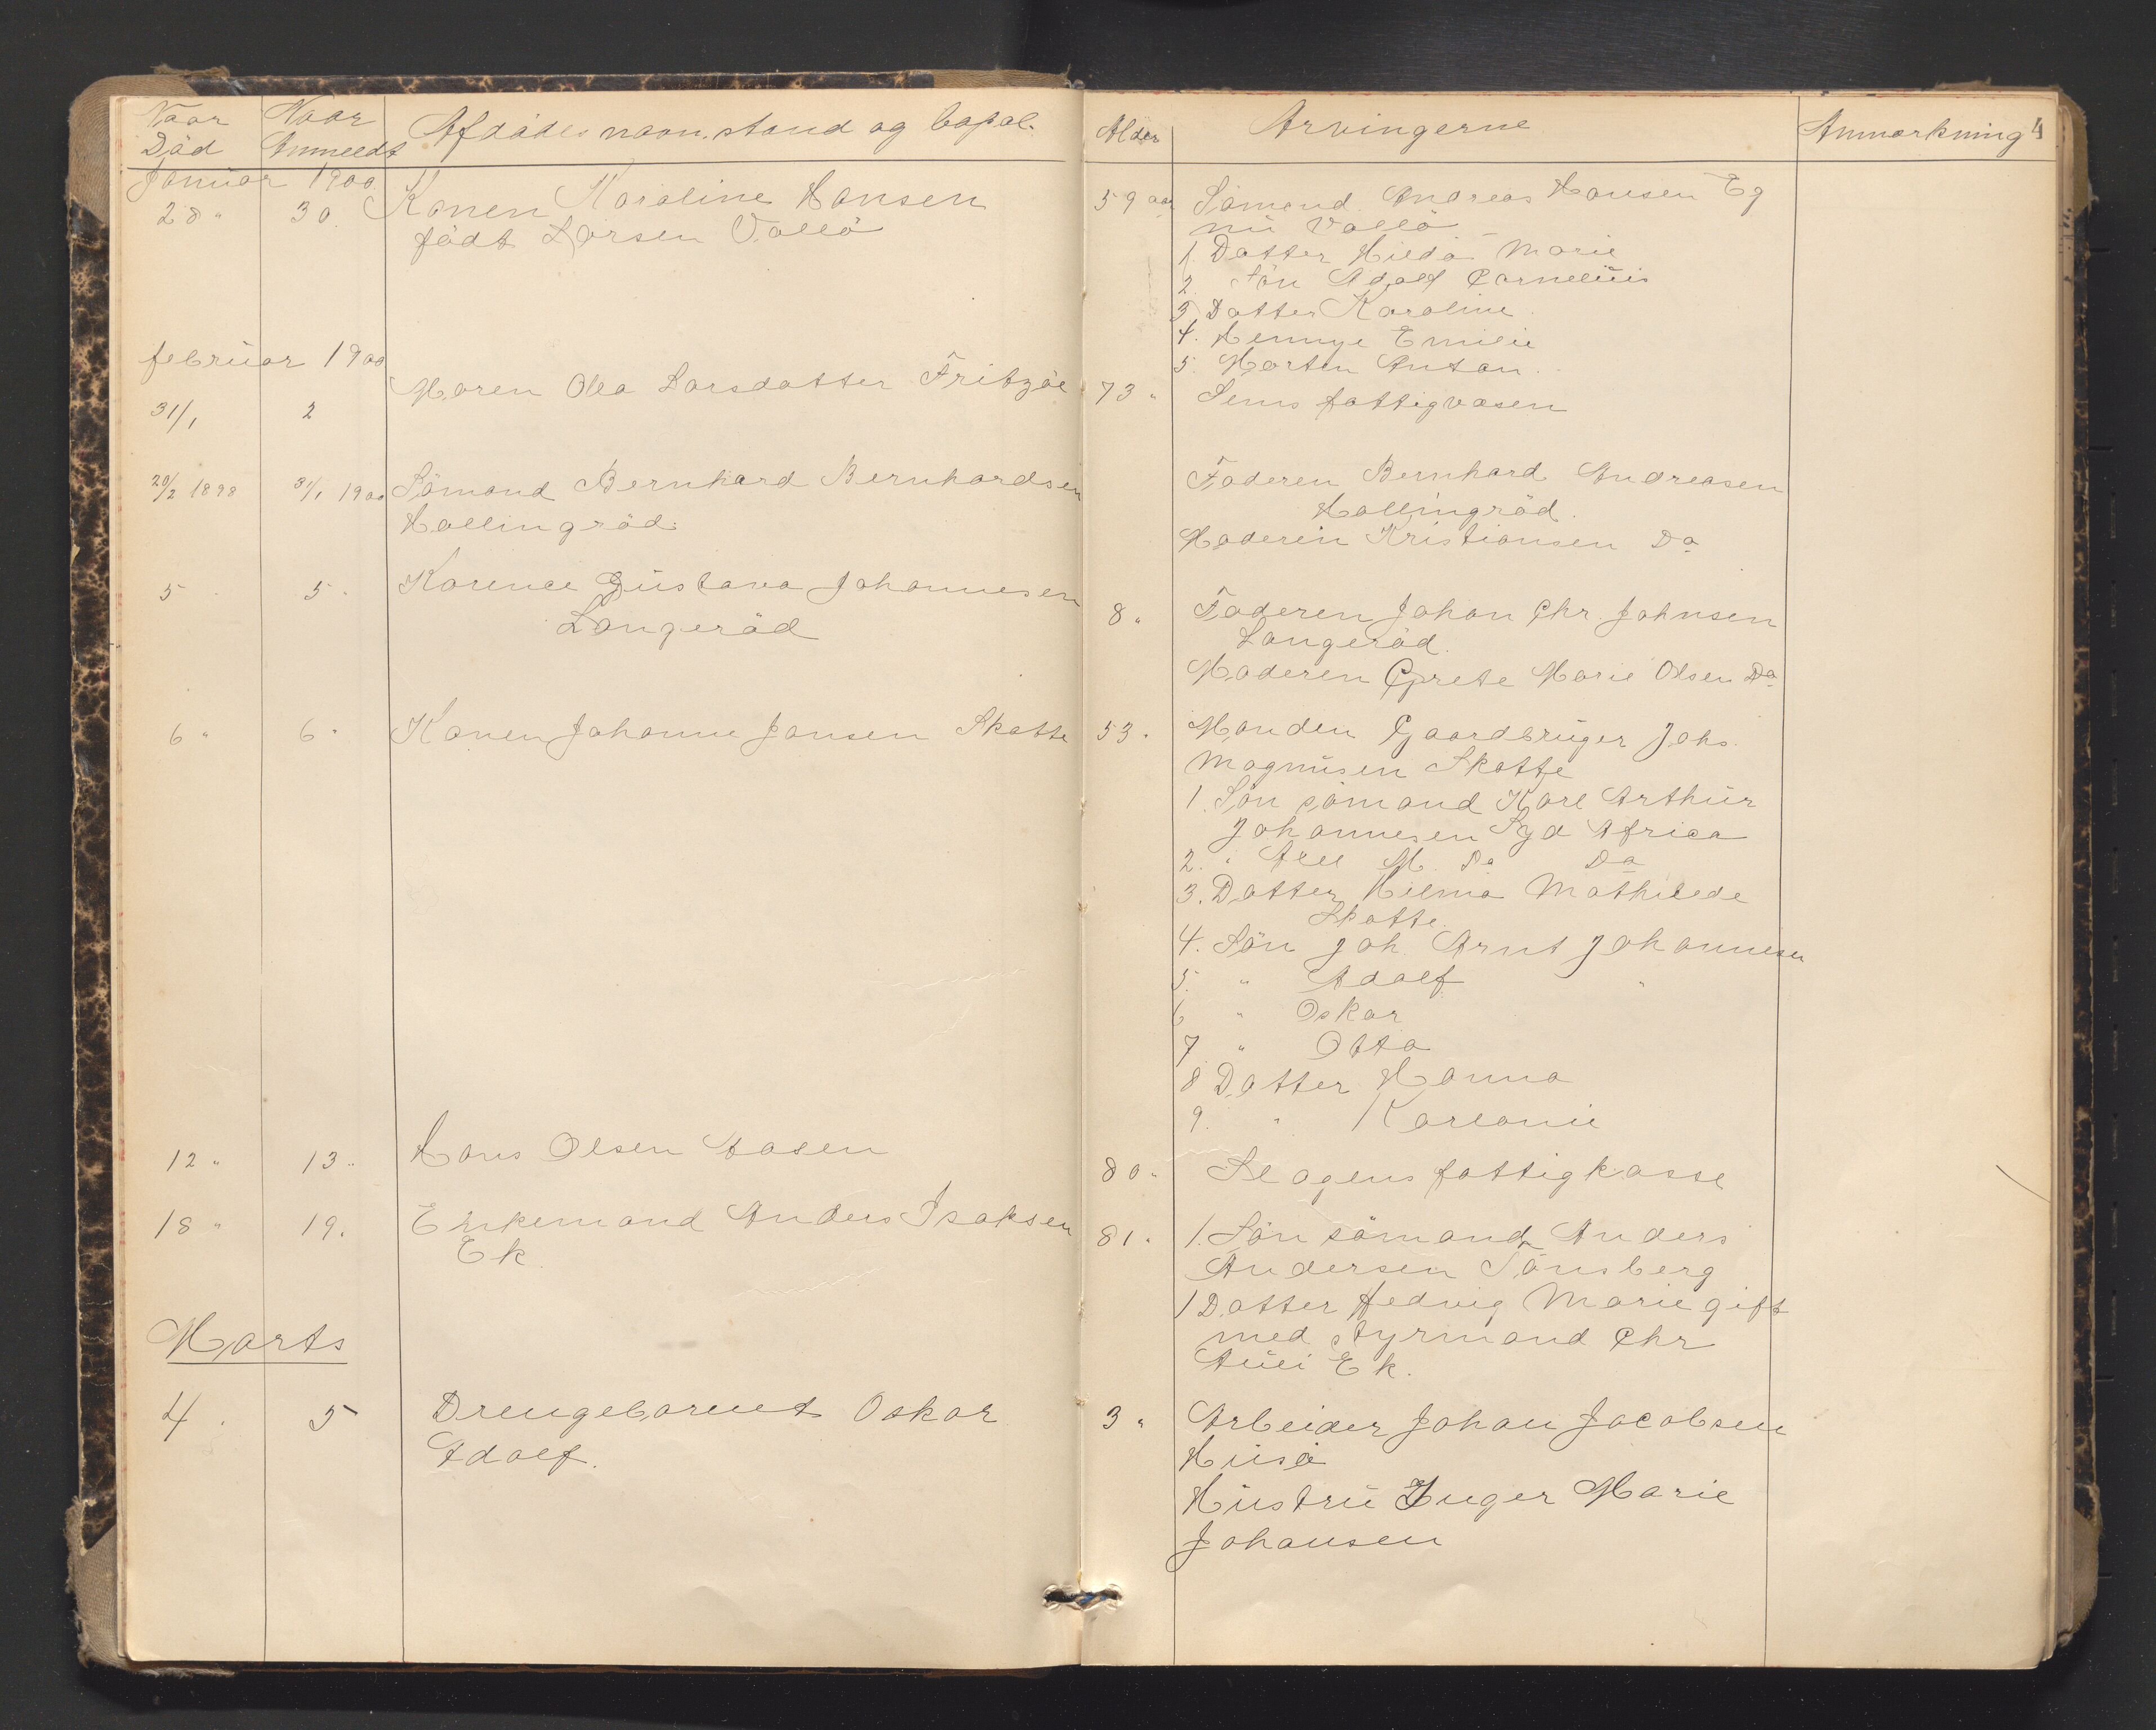 Naar Död
Naar Anmeldt
Afdödes navn, stand og bopæl.
Alder
Arvingerne
Anmærkning
4
Januar 1900.
28 " 30. Konen Karoline Hansen
födt Larsen Vallö
59 aar Sömand Andreas Hansen Eg
nu Vallö
1. Datter Hilda Marie
2. Sön Adolf Cornelius
3. Datter Karoline
4. Hennye Emilie
5. Marten Antan.
februar 1900
31/1 2 Maren Olea Larsdatter Fritzöe
73 " Sems fattigvæsen
20/2 1898 31/1 1900 Sömand Bernhard Bernhardsen
Hallingröd.
Faderen Bernhard Andreasen
Hallingröd.
Moderen Kristiansen Do
5 5. Karence Gustava Johannesen
Langeröd
8 " Faderen Johan Chr. Johnsen
Langeröd.
Moderen Grete Marie Olsen Do
6 " 6 " Konen Johanne Jansen Skatte
53. Manden Gaardbruger Johs.
Magnusen Skatte
1. Sön sömand Karl Arthur
Johannesen Syd Africa
2. " M. Do Do
3. Datter Hilma Mathilde
Skatte.
4. Sön Joh. Arnt Johannesen
5. " Adolf "
6 " Oskar
7 " Otto
8 Datter Hanna
9. " Karlanie
12 " 13 " Hans Olsen Aasen
80. Slagens fattigkasse
18 " 19. Enkemand Anders Isaksen
Ek.
81. 1. Sön sömand Anders
Andersen Tönsberg
1 Datter Hedvig Marie gift
med styrmand Chr
Ek.
Marts
4. 5 Drengebarnet Oskar
Adolf.
3 " Arbeider Johan Jacobsen
Husö
Hustru Inger Marie
Johansen